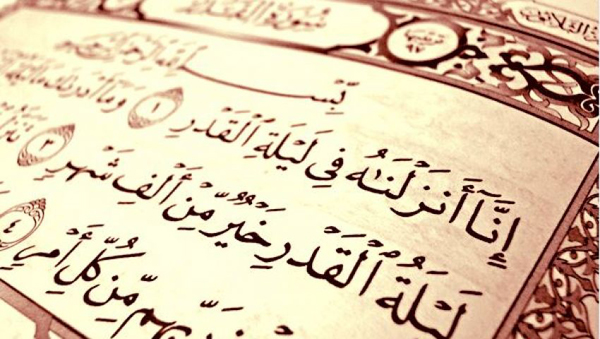 سُورَةُ القَدْرِ
بِسْمِ ٱللَّهِ ٱلرَّحْمَٰنِ ٱلرَّحِيمِ
إِنَّآ أَنزَلْنَٰهُ فِي لَيْلَةِ ٱلْقَدْرِ ١ وَمَآ أَدْرَىٰكَ
لَيْلَةُ ٱلْقَدْرِ خَيْرٌ مِّنْ أَلْفِ شَهْرٍ ٣
رَبِّهِم مِّن كُلِّ أَمْرٍ ٤